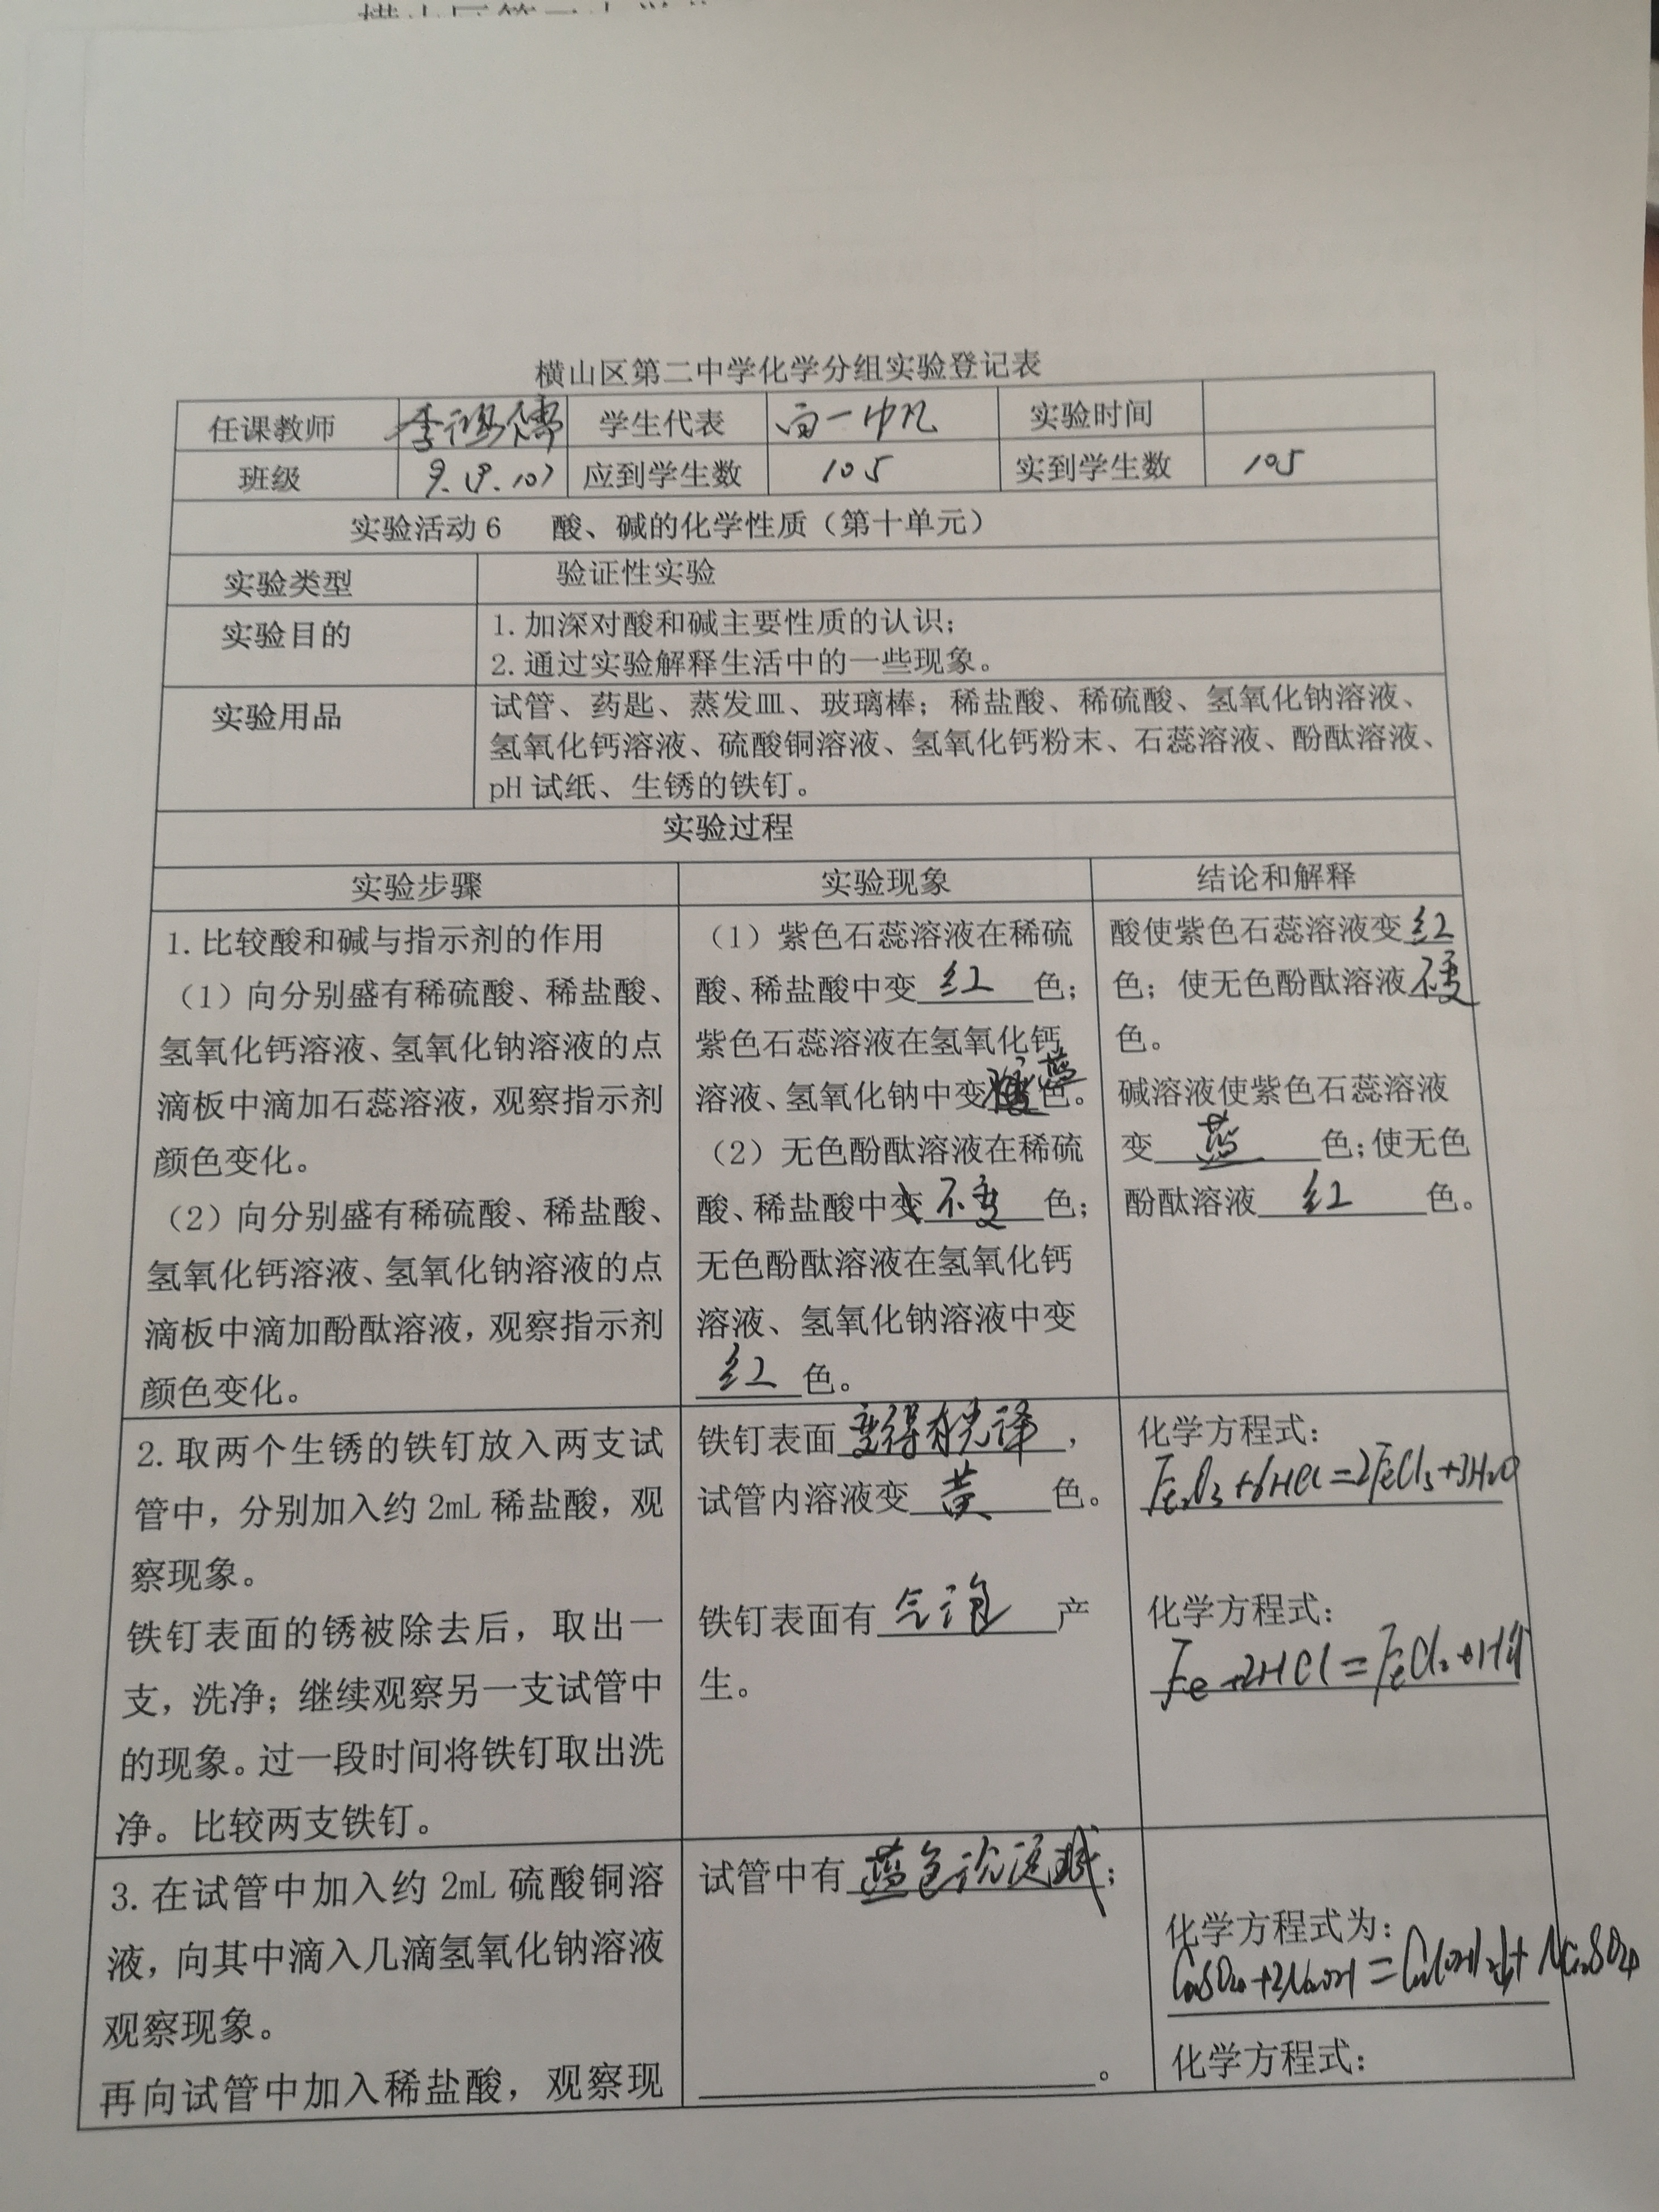 横山区第二中学化学分组实验登记表
任课教师 学生代表 实验时间
班级 应到学生数 105 实到学生数 105
实验活动6 酸、碱的化学性质（第十单元）
实验类型 验证性实验
实验目的 1.加深对酸和碱主要性质的认识；
2.通过实验解释生活中的一些现象。
实验用品 试管、药匙、蒸发皿、玻璃棒；稀盐酸、稀硫酸、氢氧化钠溶液、
氢氧化钙溶液、硫酸铜溶液、氢氧化钙粉末、石蕊溶液、酚酞溶液、
pH试纸、生锈的铁钉。
实验过程
实验步骤 实验现象 结论和解释
1.比较酸和碱与指示剂的作用
（1）向分别盛有稀硫酸、稀盐酸、
氢氧化钙溶液、氢氧化钠溶液的点
滴板中滴加石蕊溶液，观察指示剂
颜色变化。
（2）向分别盛有稀硫酸、稀盐酸、
氢氧化钙溶液、氢氧化钠溶液的点
滴板中滴加酚酞溶液，观察指示剂
颜色变化。
（1）紫色石蕊溶液在稀硫
酸、稀盐酸中变红色；
紫色石蕊溶液在氢氧化钙
溶液、氢氧化钠中变蓝色。
（2）无色酚酞溶液在稀硫
酸、稀盐酸中变不变色；
无色酚酞溶液在氢氧化钙
溶液、氢氧化钠溶液中变
红色。
酸使紫色石蕊溶液变红
色；使无色酚酞溶液不变
色。
碱溶液使紫色石蕊溶液
变蓝色；使无色
酚酞溶液红色。
2.取两个生锈的铁钉放入两支试
管中，分别加入约2mL稀盐酸，观
察现象。
铁钉表面的锈被除去后，取出一
支，洗净；继续观察另一支试管中
的现象。过一段时间将铁钉取出洗
净。比较两支铁钉。
铁钉表面变得有光泽，
试管内溶液变黄色。
铁钉表面有气泡产
生。
化学方程式：
Fe₂O₃+6HCl=2FeCl₃+3H₂O
化学方程式：
Fe+2HCl=FeCl₂+H₂↑
3.在试管中加入约2mL硫酸铜溶
液，向其中滴入几滴氢氧化钠溶液
观察现象。
再向试管中加入稀盐酸，观察现
试管中有蓝色沉淀；
。
化学方程式为：
CuSO₄+2NaOH=Cu(OH)₂↓+Na₂SO₄
化学方程式：